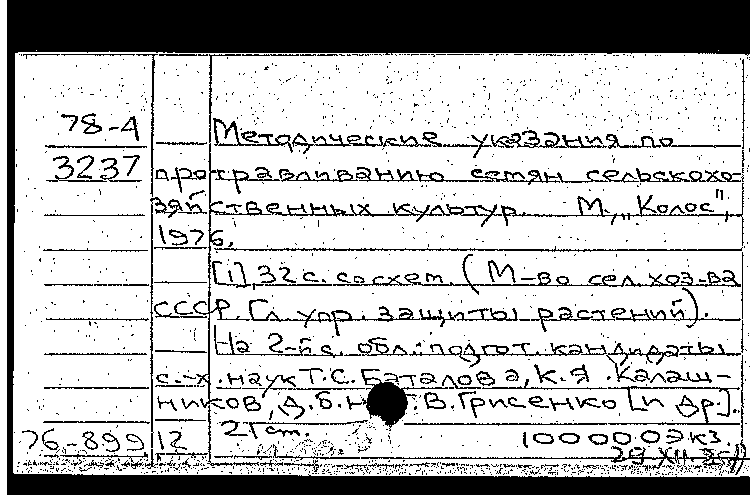 78-4 Методические указания по
3237 протравливанию семян сельскохо-
зяйственных культур. М., „Колос",
1976.
[1], 32 с. со схем. (М-во сел. хоз-ва
СССР. Гл. упр. защиты растений).
На 2-й с. обл.: подгот. кандидаты
с.-х. наук Т.С. Баталова, К.Я. Калаш-
ников, Д.Б. В. Грисенко [и др.].
76-899 12 21 ст. 100000 экз.
29 XII